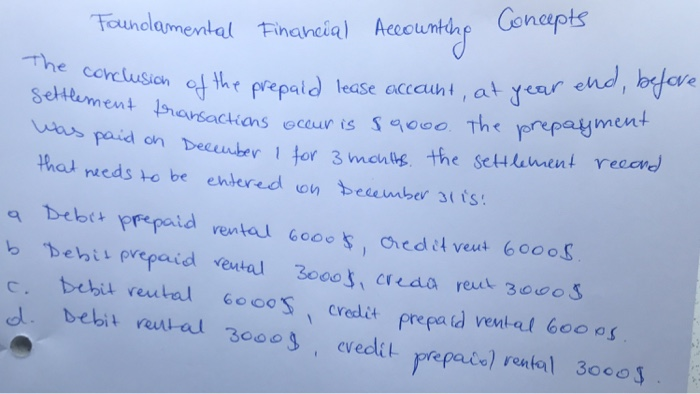 Foundamental Financial Accounting Concepts
The conclusion of the prepaid lease account, at year end, before
Settlement transactions occur is $9,000. The prepayment
was paid on December 1 for 3 months. the settlement record
that needs to be entered on December 31 is:
a Debit prepaid rental 6000$, credit rent 6000$.
b Debit prepaid rental 3000$, creda rent 3000$
c. Debit rental 6000$, credit prepaid rental 6000$.
d. Debit rental 3000$, credit prepaid rental 3000$.